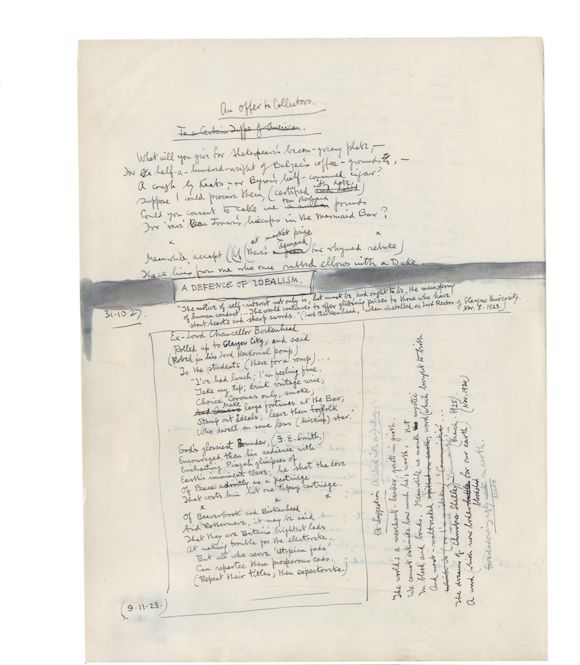 An offer to Collectors.
To a Certain Type of American.
What will you give for Shakespeare's bacon-greasy plate,—
For half-a-hundred-weight of Balzac's coffee-grounds,—
A cough by Keats—or Byron's half-consumed cigar?
Suppose I could procure them, (certified
Could you consent to take ten thousand pounds
For rare Ben Jonson's hiccups in the Mermaid Bar?
x x
at market price
Meanwhile accept (if there's demand for rhymed rebuke)
These lines from one who once rubbed elbows with a Duke.
A DEFENCE OF IDEALISM.
31-10-27.
"The motive of self-interest not only is, but must be, and ought to be, the mainspring
of human conduct. The world continues to offer glittering prizes to those who have
stout hearts and sharp swords." (Lord Birkenhead, when installed as Lord Rector of Glasgow University.
Nov. 8. 1923.
Ex-Lord Chancellor Birkenhead
Rolled up to Glasgow City, and said
(Robed in his Lord Rectorial pomp)
To the students (there for a romp)...
"I've had lunch; I'm feeling fine.
Take my tip; drink vintage wine;
Choice Coronas only, smoke;
Make large fortunes at the Bar;
Stamp out Ideals; leave them for folk
Who dwell on some less (hiccup) star."
God's glossiest Bounder, (F. E. Smith,)
Encouraged then his audience with
Enchanting Pisgah glimpses of
Earth's imminent Wars; he shot the dove
Of Peace as a partridge
That costs him but one tipsy cartridge.
x x x
Of Beaverbrook and Birkenhead
And Rothermere, it may be said
That they are Britain's brightest lads
At making trouble for the electorate.
But all who serve Utopian fads
Can repartee these prosperous cads.
(Repeat their titles; then expectorate.)
9-11-23.
The world's a merchant-
We cannot estimate how much he's worth.
In blood and bonds. Meanwhile we
word (which brought to birth
The dreams of
A word which now for our earth)
(Nov. 1924)